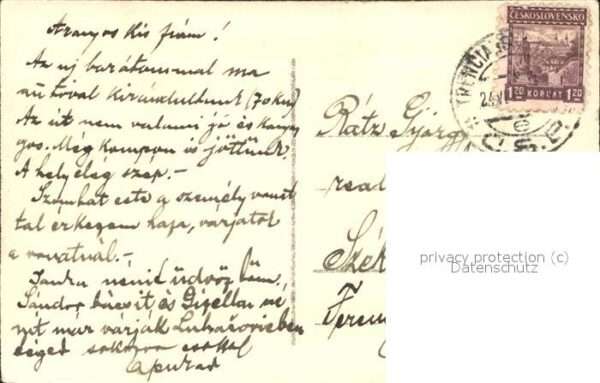 Aranyos kis fiam!
Az új barátommal ma
autóval kirándultunk (70 km)
Az út nem valami jó és kanyar
gos. Még kompon is jöttünk.
A hely elég szép. —
Szombat este a személy vonat
tal érkezem haza, várjatok
a vonatnál. —
néni üdvöz
Sándor bácsit és Gizella né
nit már várják Luhačovicében
téged sokszor csókol
apukád
ČESKOSLOVENSKO
1.20 KORUNY 1.20
TRENČIA
Rátz György
real
Szé
Feren
privacy protection (c)
Datenschutz